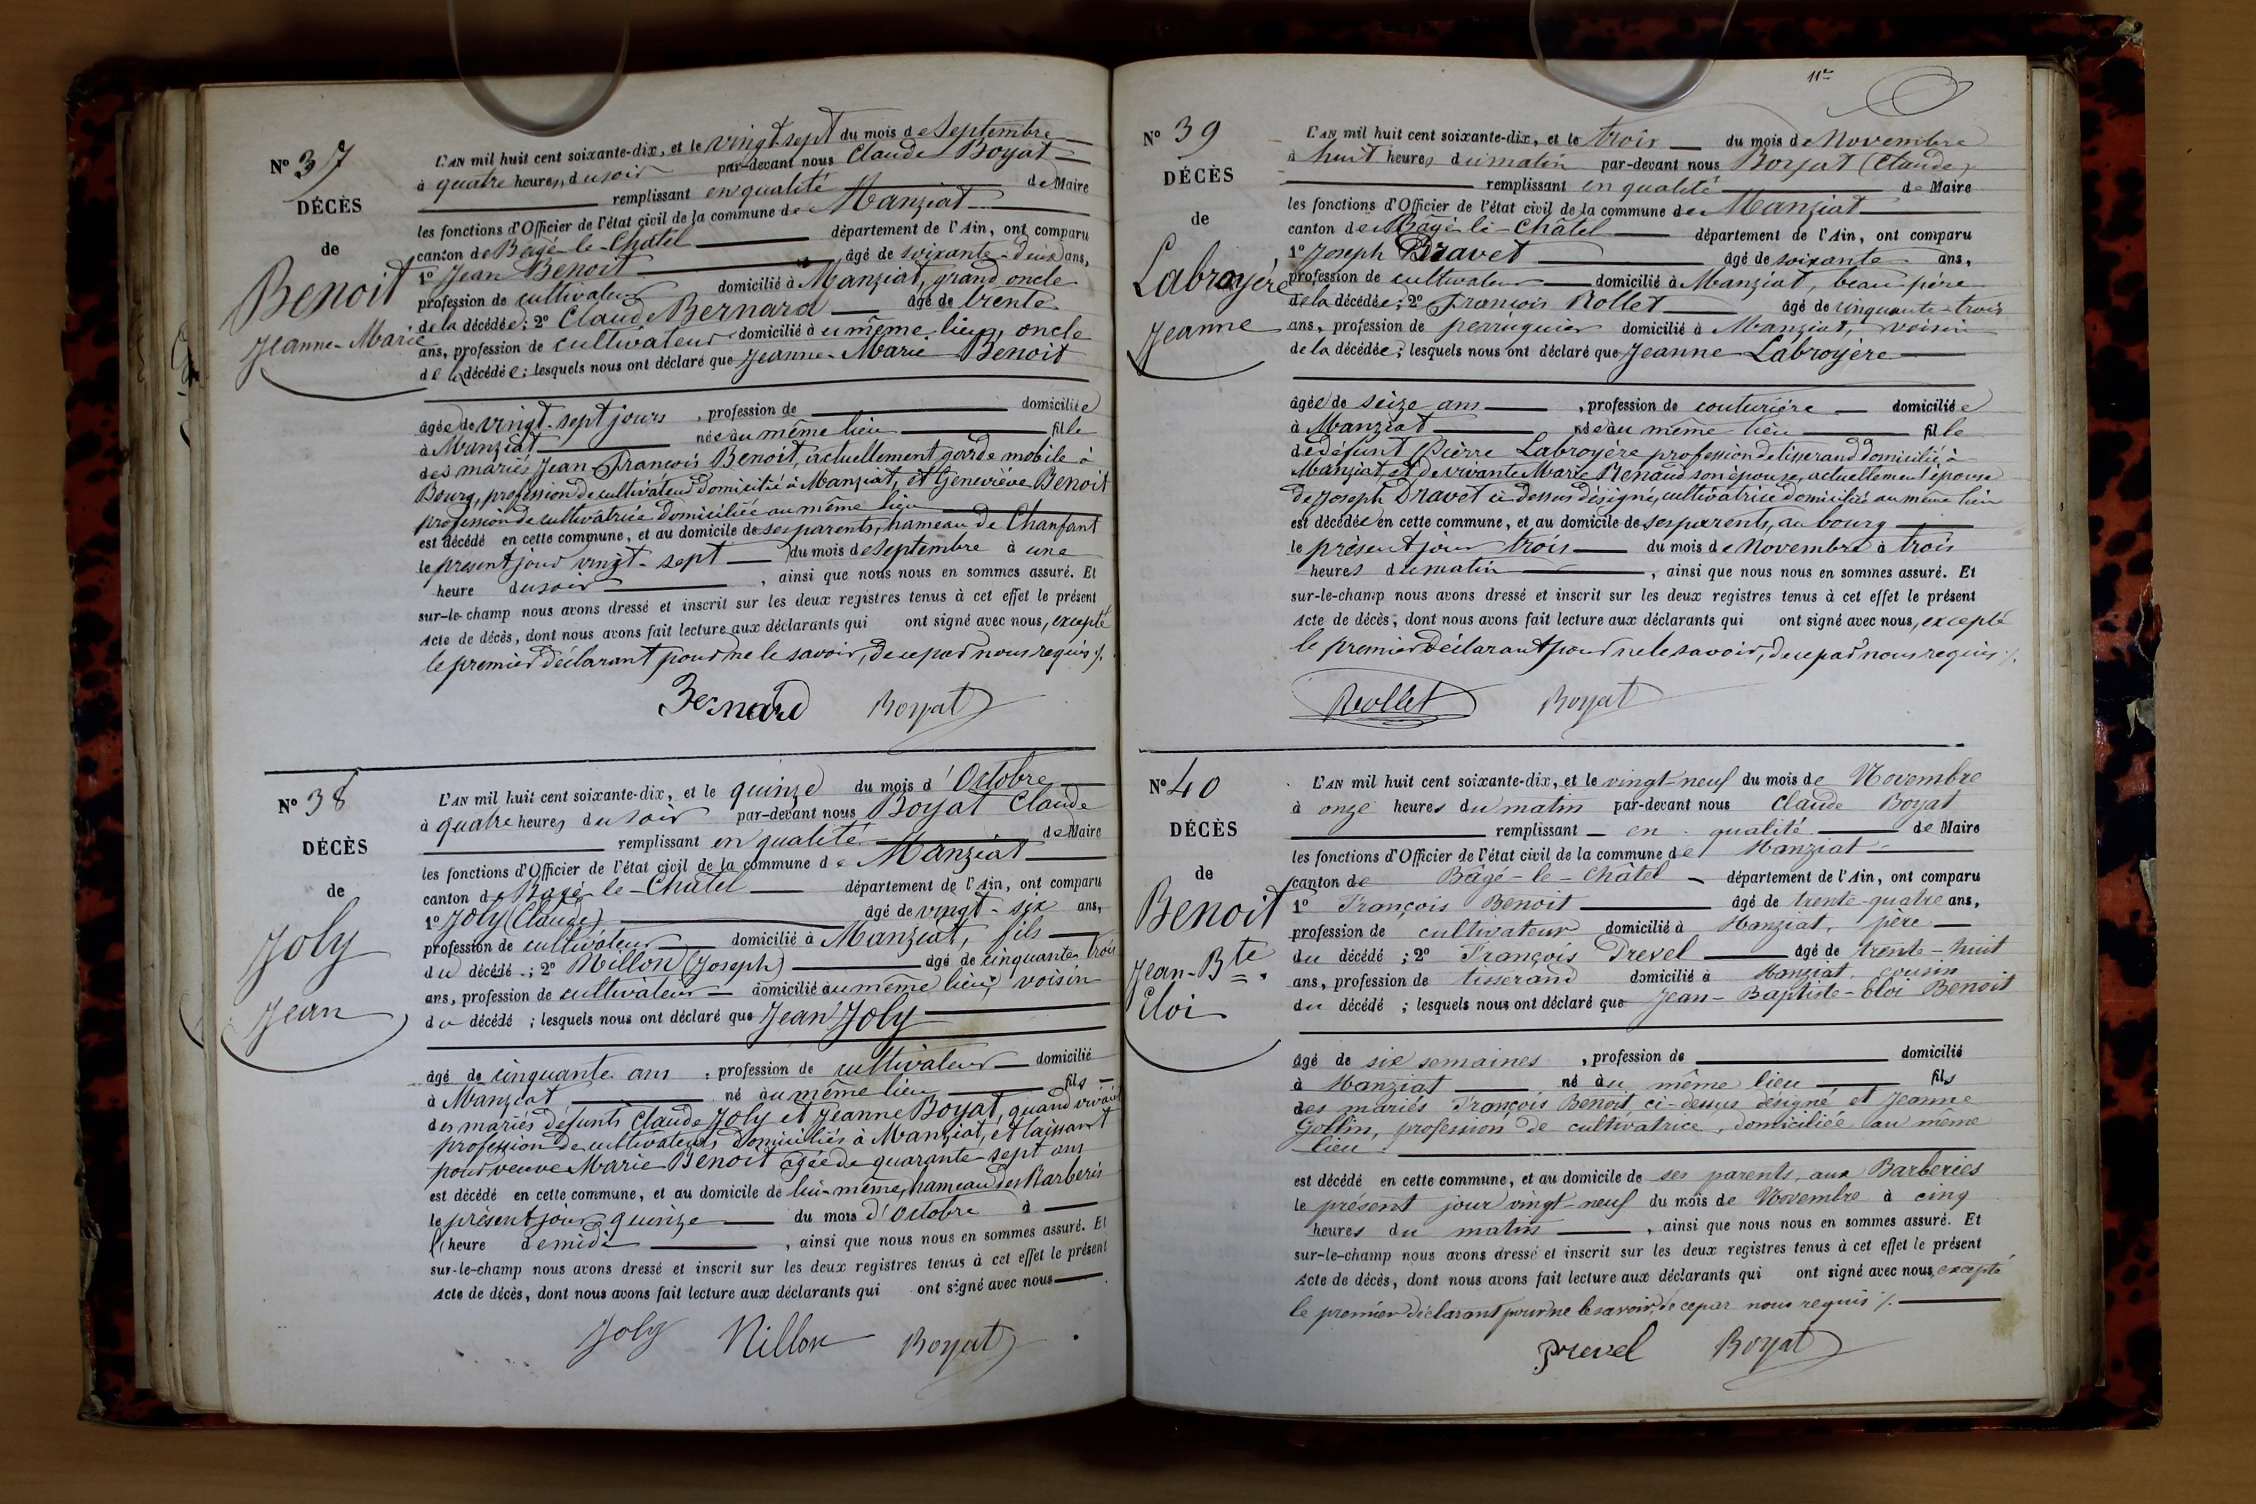 N° 37
DÉCÈS
de
Benoit
Jeanne-Marie
L'AN mil huit cent soixante-dix, et le vingt-sept du mois de Septembre
à quatre heures du soir par-devant nous Claude Boyat
remplissant en qualité de Maire
les fonctions d'Officier de l'état civil de la commune de Manziat
canton de Bagé-le-Châtel département de l'Ain, ont comparu
1° Jean Benoit âgé de soixante-deux ans,
profession de cultivateur domicilié à Manziat, grand oncle
de la décédée; 2° Claude Bernard âgé de trente
ans, profession de cultivateur domicilié au même lieu, oncle
de la décédée; lesquels nous ont déclaré que Jeanne-Marie Benoit
âgée de vingt-sept jours, profession de domiciliée
à Manziat née au même lieu fille
des mariés Jean-François Benoit, actuellement garde mobile à
Bourg, profession de cultivateur domicilié à Manziat, et Geneviève Benoit
profession de cultivatrice domiciliée au même lieu
est décédé en cette commune, et au domicile de ses parents, hameau de Chanfant
le présent jour vingt-sept du mois de Septembre à une
heure du soir, ainsi que nous nous en sommes assuré. Et
sur-le-champ nous avons dressé et inscrit sur les deux registres tenus à cet effet le présent
Acte de décès, dont nous avons fait lecture aux déclarants qui ont signé avec nous, excepté
le premier déclarant pour ne le savoir, de ce par nous requis ./.
Bernard Boyat
N° 38
DÉCÈS
de
Joly
Jean
L'AN mil huit cent soixante-dix, et le quinze du mois d'Octobre
à quatre heures du soir par-devant nous Boyat Claude
remplissant en qualité de Maire
les fonctions d'Officier de l'état civil de la commune de Manziat
canton de Bagé-le-Châtel département de l'Ain, ont comparu
1° Joly (Claude) âgé de vingt-six ans,
profession de cultivateur domicilié à Manziat, fils
du décédé; 2° Nillon (Joseph) âgé de cinquante-trois
ans, profession de cultivateur domicilié au même lieu, voisin
du décédé; lesquels nous ont déclaré que Jean Joly
âgé de cinquante ans, profession de cultivateur domicilié
à Manziat né au même lieu fils
des mariés défunts Claude Joly et Jeanne Boyat, quand vivait
profession de cultivateurs, domiciliés à Manziat, et laissant
pour veuve Marie Benoit âgée de quarante-sept ans
est décédé en cette commune, et au domicile de lui-même, hameau des Barberis
le présent jour quinze du mois d'Octobre à
l'heure de midi, ainsi que nous nous en sommes assuré. Et
sur-le-champ nous avons dressé et inscrit sur les deux registres tenus à cet effet le présent
Acte de décès, dont nous avons fait lecture aux déclarants qui ont signé avec nous
Joly Nillon Boyat
N° 39
DÉCÈS
de
Labroyère
Jeanne
L'AN mil huit cent soixante-dix, et le trois du mois de Novembre
à huit heures du matin par-devant nous Boyat (Claude)
remplissant en qualité de Maire
les fonctions d'Officier de l'état civil de la commune de Manziat
canton de Bâgé-le-Châtel département de l'Ain, ont comparu
1° Joseph Dravet âgé de soixante ans,
profession de cultivateur domicilié à Manziat, beau-père
de la décédée; 2° François Rollet âgé de cinquante-trois
ans, profession de perruquier domicilié à Manziat, voisin
de la décédée; lesquels nous ont déclaré que Jeanne Labroyère
âgée de seize ans, profession de couturière domiciliée
à Manziat née au même lieu fille
de défunt Pierre Labroyère profession de tisserand domicilié à
Manziat, et de vivante Marie Renaud son épouse, actuellement épouse
de Joseph Dravet ci-dessus désigné, cultivatrice domiciliée au même lieu
est décédée en cette commune, et au domicile de ses parents, au bourg
le présent jour trois du mois de Novembre à trois
heures du matin, ainsi que nous nous en sommes assuré. Et
sur-le-champ nous avons dressé et inscrit sur les deux registres tenus à cet effet le présent
Acte de décès, dont nous avons fait lecture aux déclarants qui ont signé avec nous, excepté
le premier déclarant pour ne le savoir, de ce par nous requis ./.
Rollet Boyat
N° 40
DÉCÈS
de
Benoit
Jean-Bte
Eloi
L'AN mil huit cent soixante-dix, et le vingt-neuf du mois de Novembre
à onze heures du matin par-devant nous Claude Boyat
remplissant en qualité de Maire
les fonctions d'Officier de l'état civil de la commune de Manziat
canton de Bâgé-le-Châtel département de l'Ain, ont comparu
1° François Benoit âgé de trente-quatre ans,
profession de cultivateur domicilié à Manziat, père
du décédé; 2° François Prevel âgé de trente-huit
ans, profession de tisserand domicilié à Manziat, cousin
du décédé; lesquels nous ont déclaré que Jean-Baptiste-Eloi Benoit
âgé de six semaines, profession de domicilié
à Manziat né au même lieu fils
des mariés François Benoit ci-dessus désigné et Jeanne
profession de cultivatrice, domiciliée au même
lieu.
est décédé en cette commune, et au domicile de ses parents, aux Barberies
le présent jour vingt-neuf du mois de Novembre à cinq
heures du matin, ainsi que nous nous en sommes assuré. Et
sur-le-champ nous avons dressé et inscrit sur les deux registres tenus à cet effet le présent
Acte de décès, dont nous avons fait lecture aux déclarants qui ont signé avec nous, excepté
le premier déclarant pour ne le savoir, de ce par nous requis ./.
Prevel Boyat